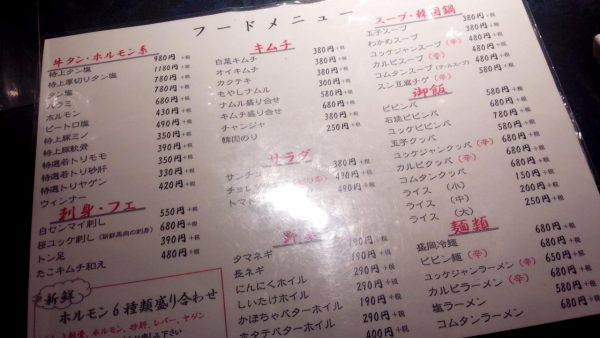 フードメニュー
牛タン・ホルモン系
特上タン塩 980円+税
特上厚切りタン塩 1180円+税
タン塩 780円+税
ハラミ 780円+税
ホルモン 680円+税
ピートロ塩 430円+税
特上豚ミノ 490円+税
特上豚軟骨 350円+税
特選若トリモモ 390円+税
特選若トリ砂肝 330円+税
特選トリヤゲン 330円+税
ウィンナー 420円+税
刺身・フェ
白センマイ刺し 550円+税
桜ユッケ刺し(新鮮馬肉の刺身) 680円+税
トン足 390円+税
たこキムチ和え 480円+税
新鮮
ホルモン6種類盛り合わせ
ホルモン、砂肝、レバー、ヤゲン
キムチ
白菜キムチ 380円+税
オイキムチ 380円+税
カクテキ 380円+税
もやしナムル 300円+税
ナムル盛り合せ 580円+税
キムチ盛り合せ 680円+税
チャンジャ 350円+税
韓国のり 250円+税
サラダ
サンチュ 380円+税
チョレ 490円+税
トマト 490円+税
野菜
タマネギ 290円+税
長ネギ 190円+税
にんにくホイル 290円+税
しいたけホイル 190円+税
かぼちゃバターホイル 290円+税
ホタテバターホイル 400円+税
スープ・韓国鍋
玉子スープ 380円+税
わかめスープ 380円+税
ユッケジャンスープ(辛) 480円+税
カルビスープ(辛) 580円+税
コムタンスープ 480円+税
スン豆腐チゲ(辛) 580円+税
御飯
ビビンバ
石焼ビビンバ 580円+税
ユッケビビンバ 680円+税
玉子クッパ 780円+税
ユッケジャンクッパ(辛) 580円+税
カルビクッパ(辛) 680円+税
コムタンクッパ 680円+税
ライス(小) 150円+税
ライス(中) 200円+税
ライス(大) 250円+税
麺類
盛岡冷麺 680円+税
ビビン麺(辛) 650円+税
ユッケジャンラーメン(辛) 650円+税
カルビラーメン(辛) 680円+税
塩ラーメン 580円+税
コムタンラーメン 680円+税